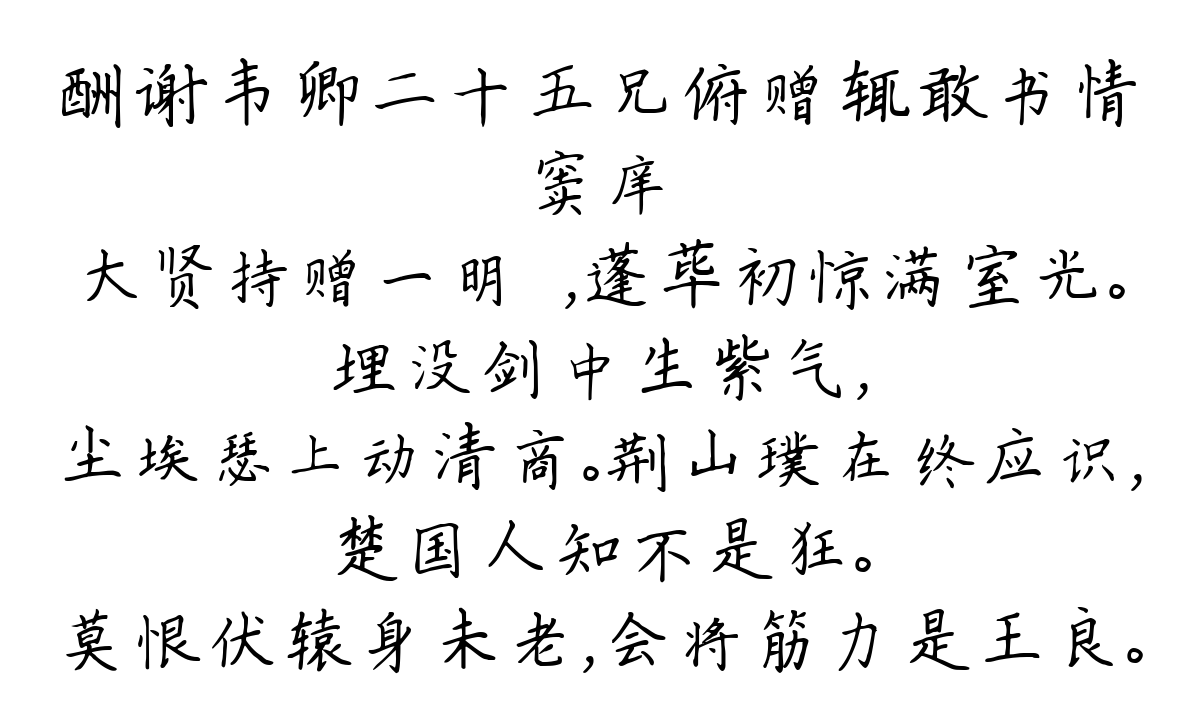 酬谢韦卿二十五兄俯赠辄敢书情
窦庠
大贤持赠一明 ,蓬荜初惊满室光。
埋没剑中生紫气,
尘埃瑟上动清商。荆山璞在终应识,
楚国人知不是狂。
莫恨伏辕身未老,会将筋力是王良。